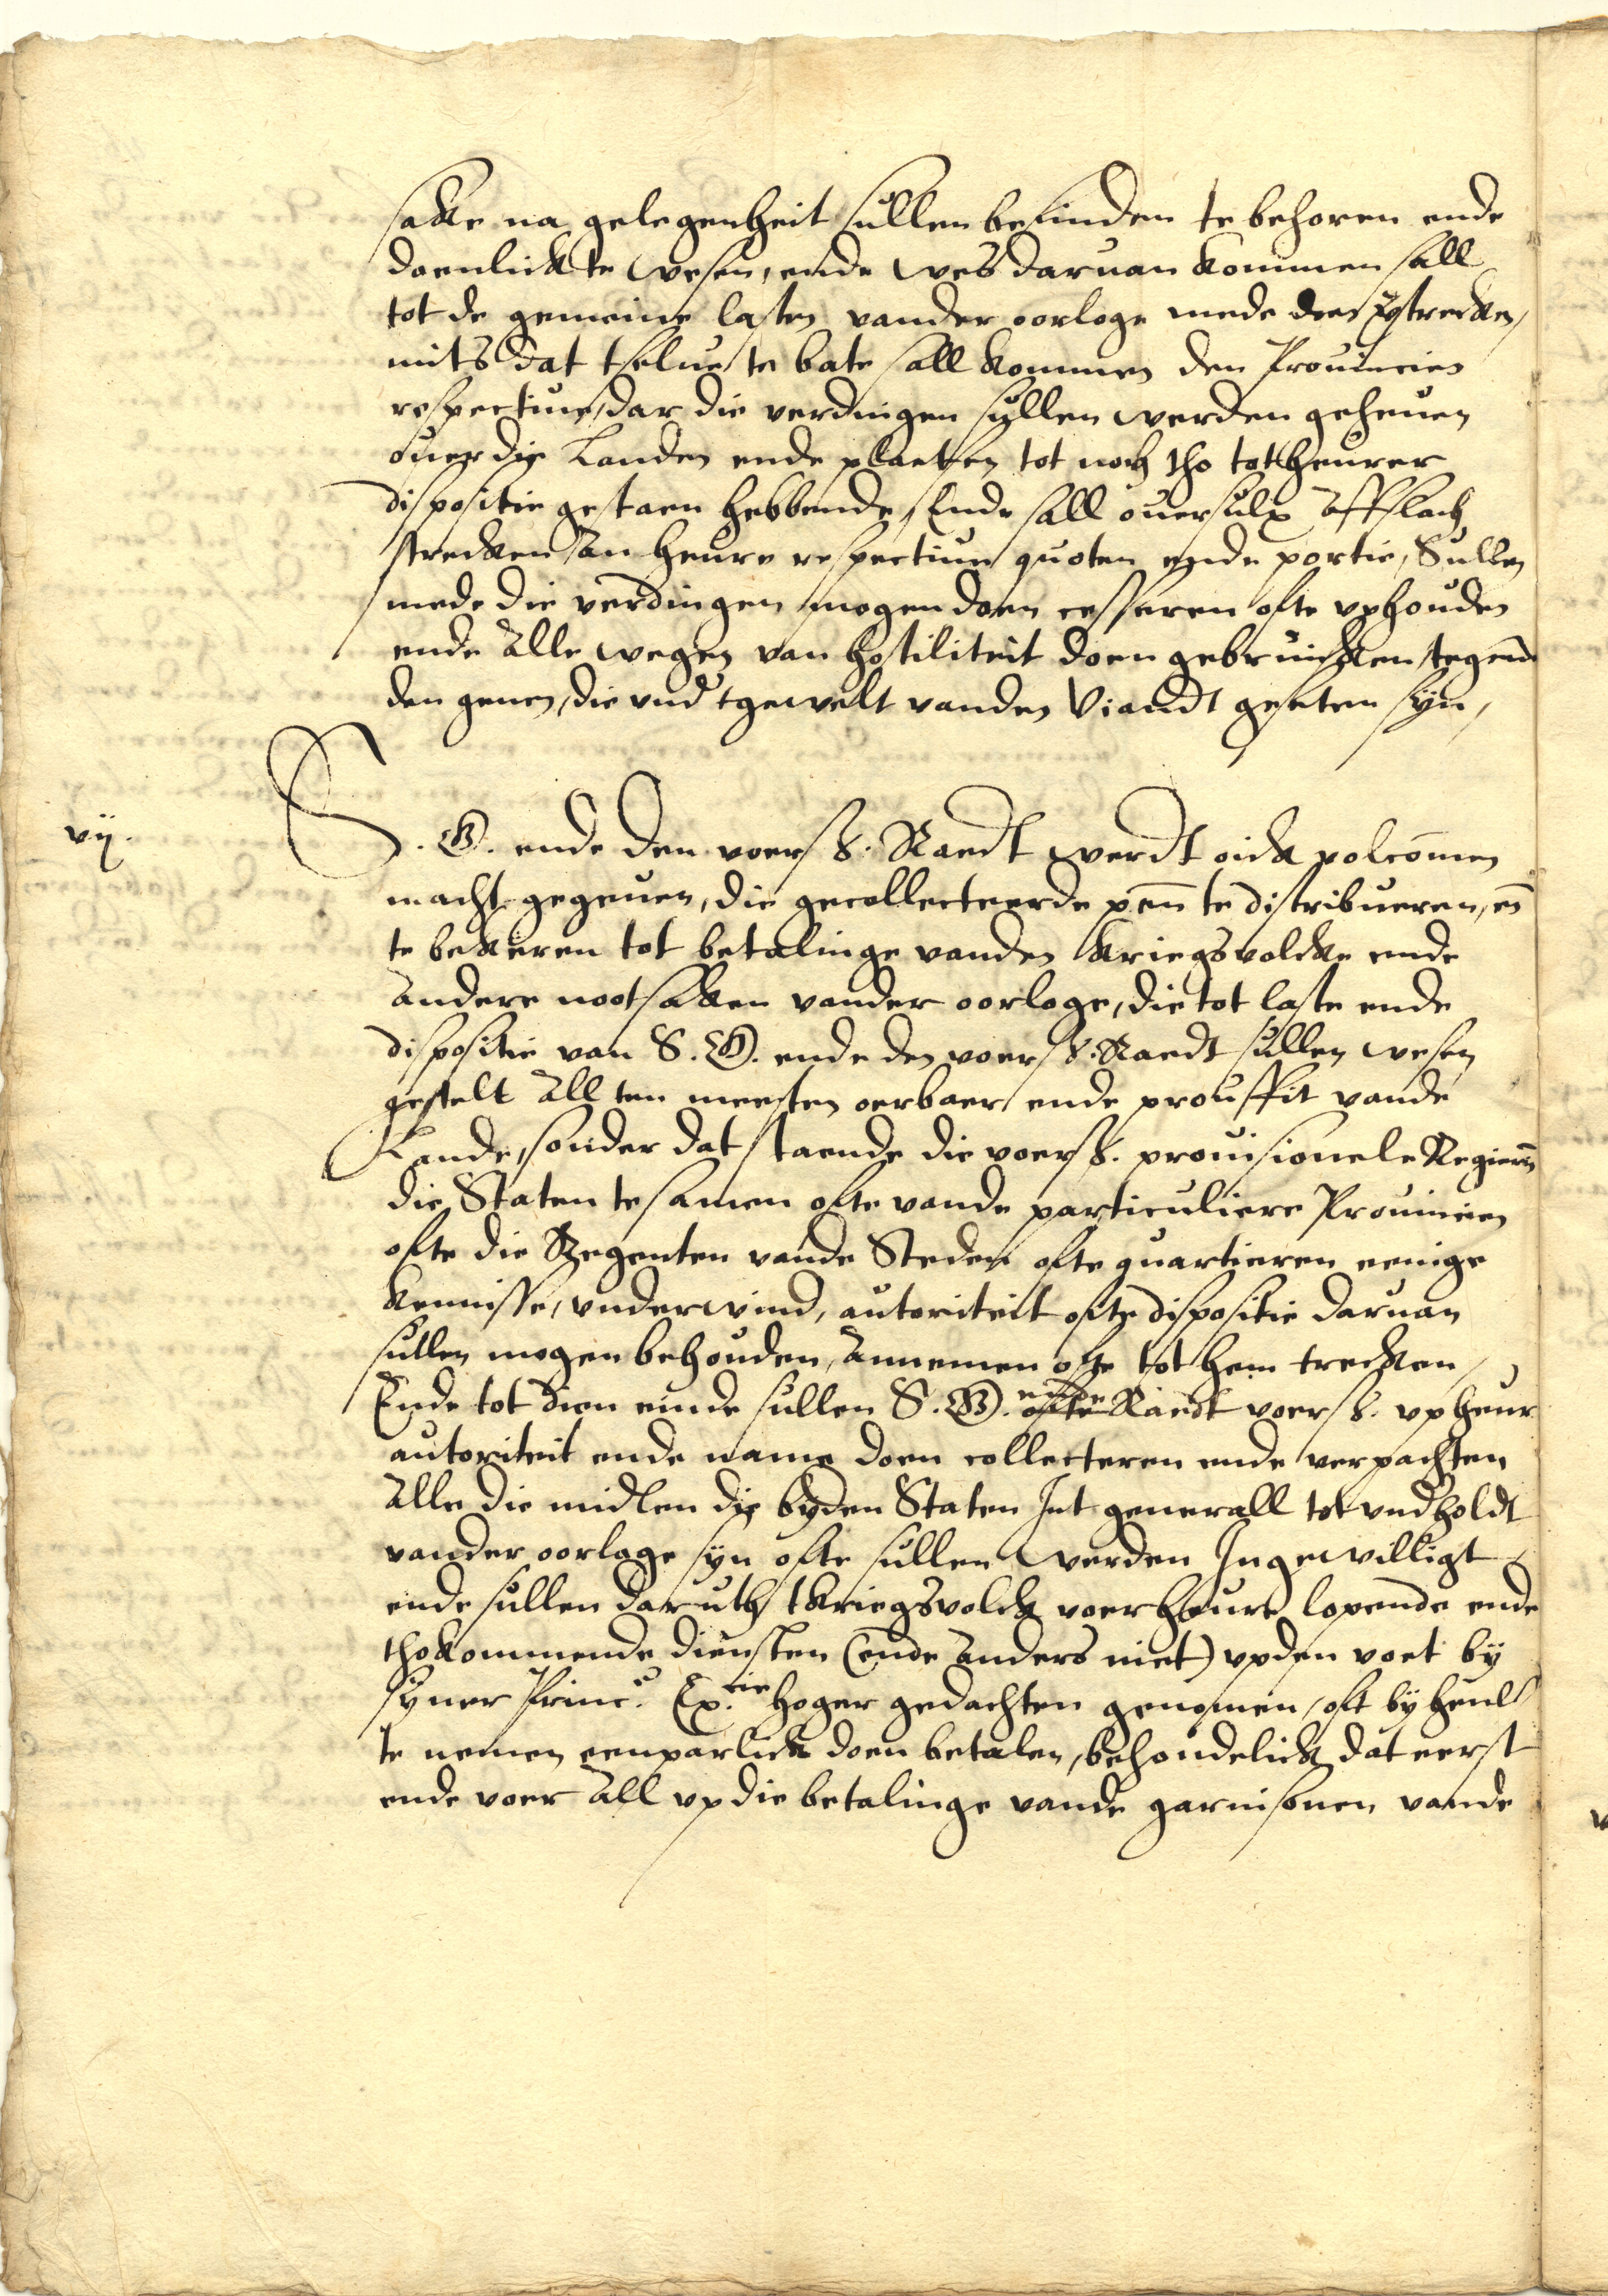 sake na gelegenheit sullen befinden te behoren ende
doenlick te wesen, ende wes daruan kommen sall
tot de gemeine lasten vander oorloge mede doen strecken,
mits dat tselue te bate sall kommen den Prouincien
respectiue, dar die verdingen sullen werden geheuen
ouer die Landen ende plaetsen tot noch tho tot heurer
dispositie gestaen hebbende, Ende sall ouersulx Affslach
strecken an heure respectiue quoten ende portie, Sullen
mede die verdingen mogen doen cesseren ofte vphouden
ende Alle wegen van hostiliteit doen gebruicken tegen
den genen, die vnd tgewelt vanden Viandt geseten syn,
vij.
S. G. ende den voers. Raedt werdt oick volcomen
macht gegeuen, die gecollecteerde penn te distribueren, en
te bekeren tot betalinge vanden kriegsvolcke ende
Andere nootsaken vander oorloge, die tot laste ende
dispositie van S. G. ende den voers. Raedt sullen wesen
gestelt All ten meesten oerbaer ende prouffit vande
Lande, sonder dat staende die voers. prouisionele Regiern
die Staten tesamen ofte vande particuliere Prouincien
ofte die Regenten vande Steden ofte quartieren eenige
kennisse, vnderwind, autoriteit ofte dispositie daruan
sullen mogen behouden, Annemen ofte tot hem trecken,
Ende tot dien einde sullen S. G. ofte Raedt voers. vp heur
autoriteit ende name doen collecteren ende verpachten
Alle die midlen die byden Staten Int generall tot vndholdt
vander oorloge syn ofte sullen werden Ingewilligt
ende sullen daruth tkriegsvolck voer heure lopende ende
thokommende diensten (ende Anders niet) vpden voet by
syner Princ. Ex.cie hoger gedachten genomen, oft by heml
te nemen eenparlick doen betalen, behoudelick dat eerst
ende voer All vp die betalinge vande garnisonen vande